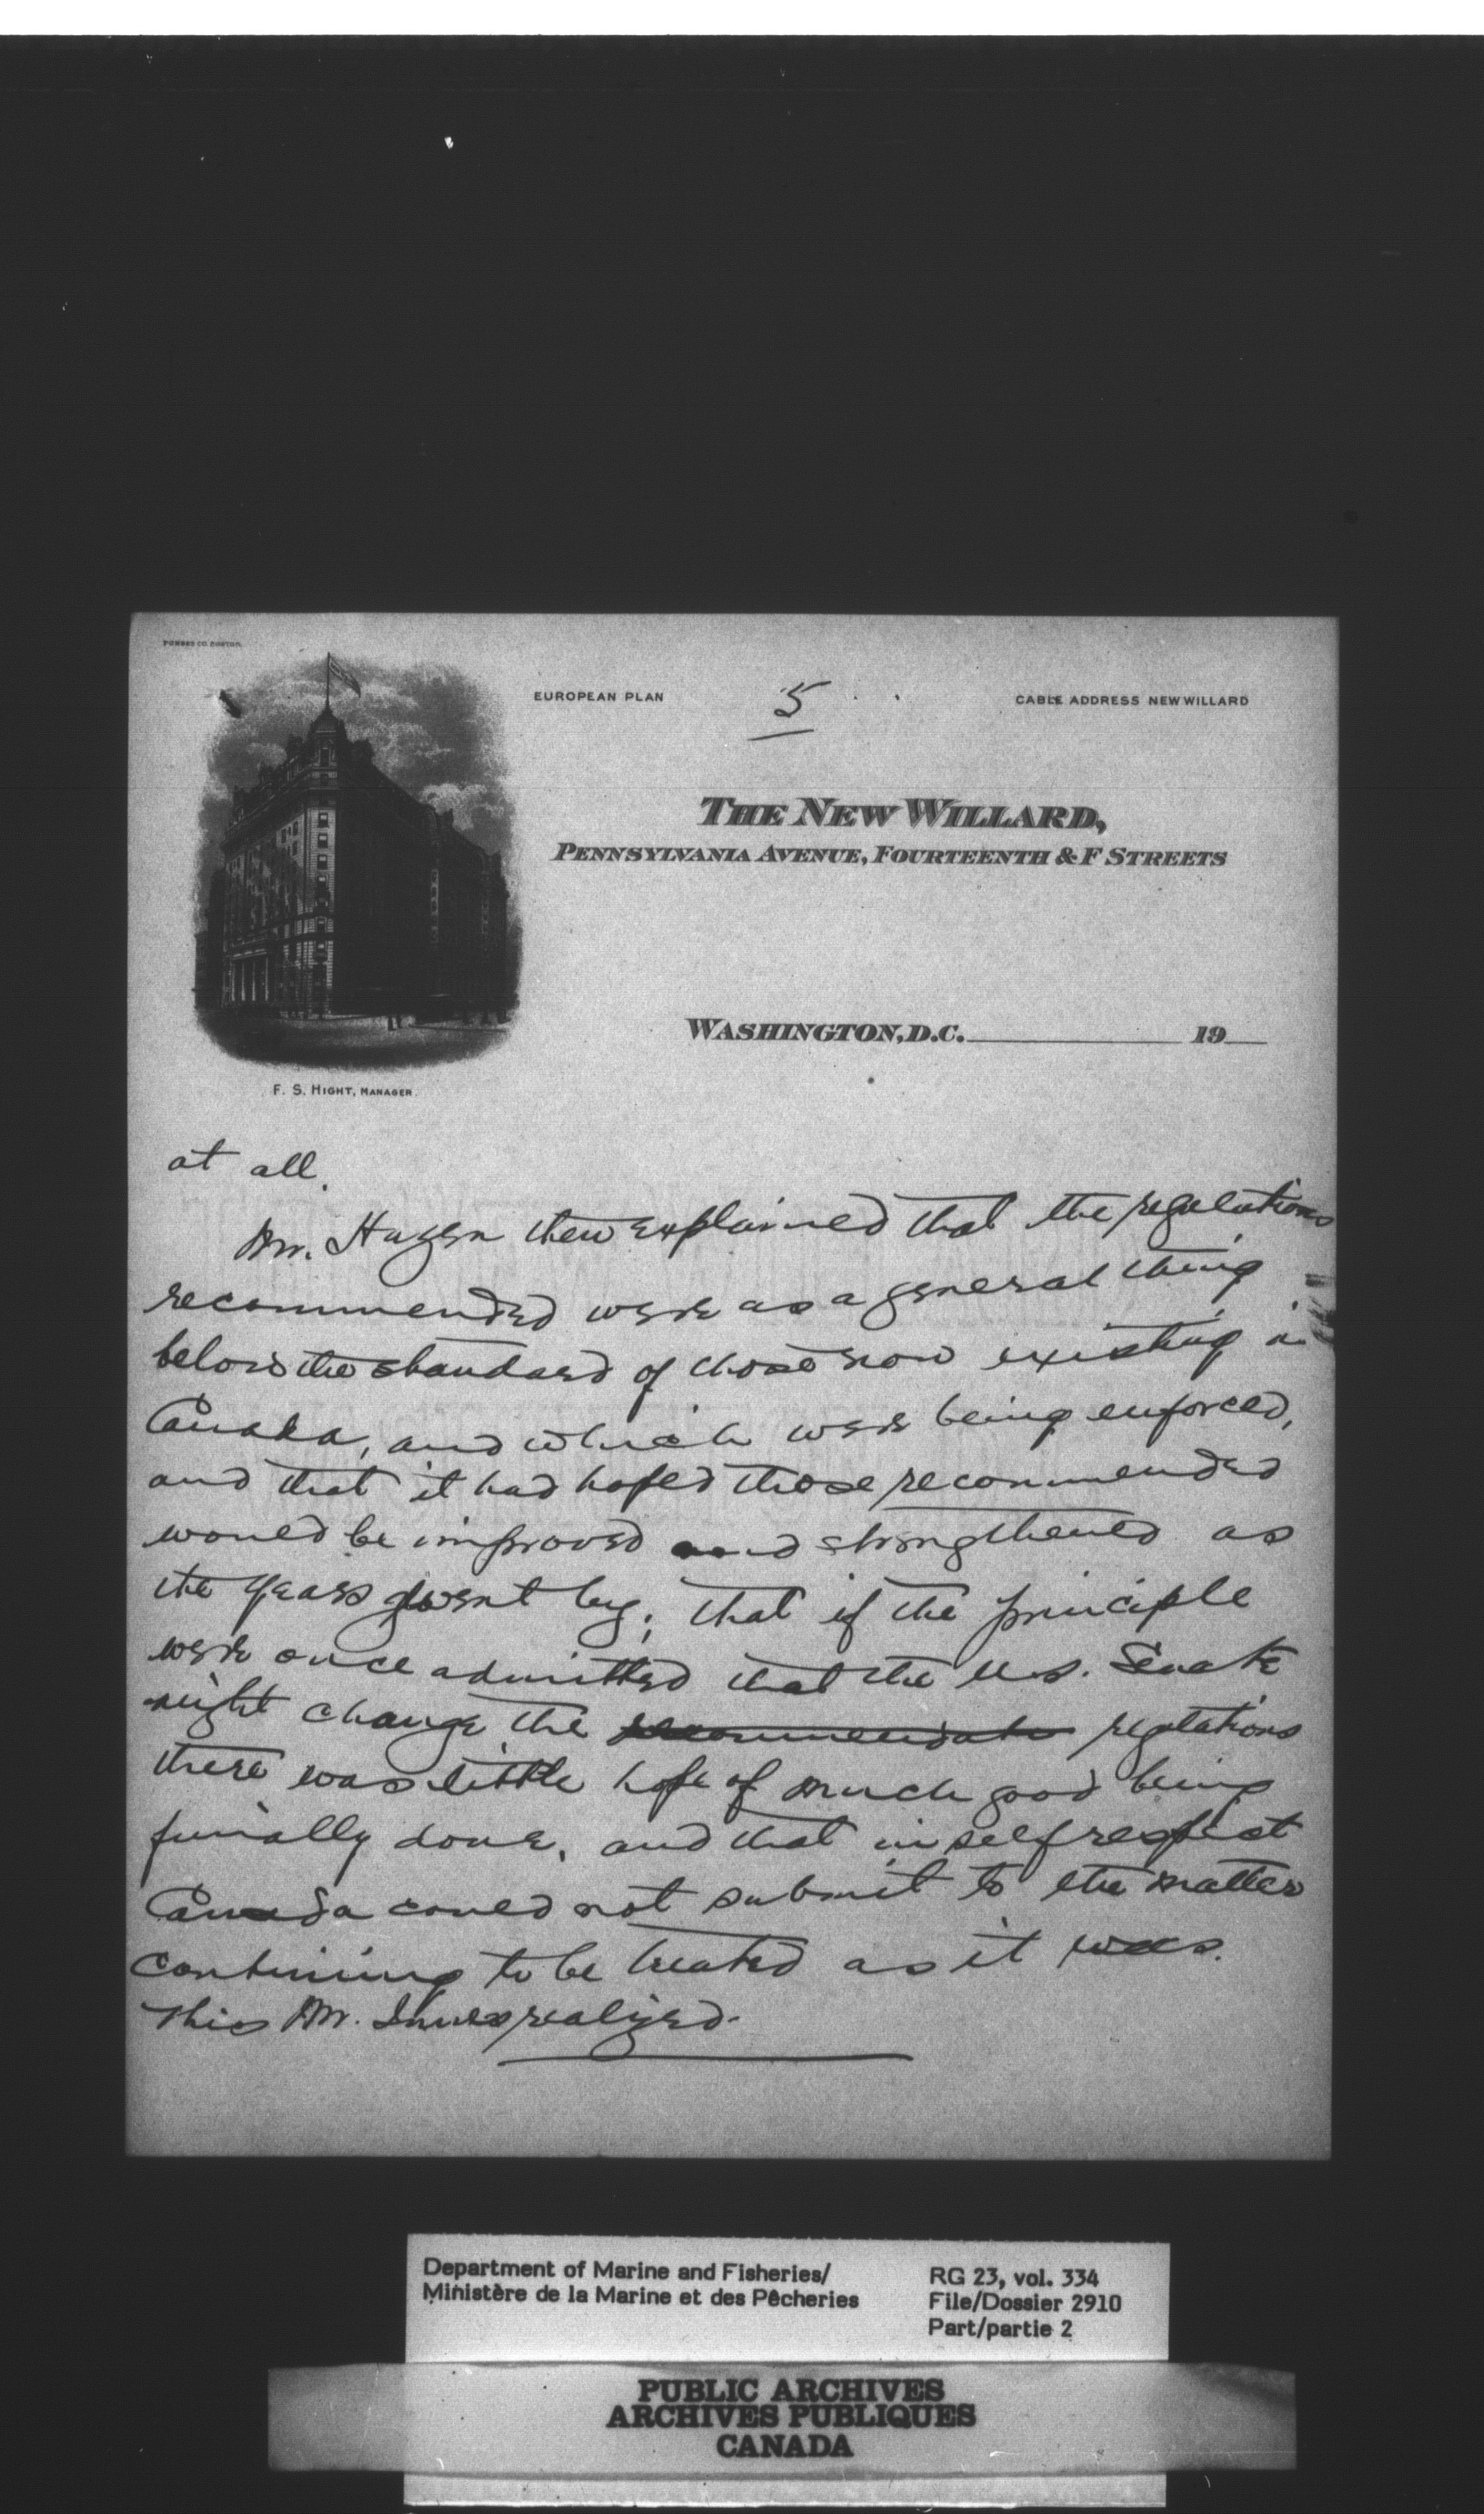 FORBES CO. BOSTON.
EUROPEAN PLAN
5
CABLE ADDRESS NEWWILLARD
THE NEW WILLARD,
PENNSYLVANIA AVENUE, FOURTEENTH & F STREETS
WASHINGTON, D.C. 19
F. S. HIGHT, MANAGER.
at all.
Mr. Hazen then explained that the regulations
recommended were as a general thing
below the standard of those now existing in
Canada, and which were being enforced,
and that it had hoped those recommended
would be improved and strengthened as
the years went by; that if the principle
were once admitted that the U.S. Senate
might change the recommendats regulations
there was little hope of much good being
finally done, and that in self respect
Canada could not submit to the matter
continuing to be treated as it was.
This Mr. Innes realized.
Department of Marine and Fisheries/
Ministère de la Marine et des Pêcheries
RG 23, vol. 334
File/Dossier 2910
Part/partie 2
PUBLIC ARCHIVES
ARCHIVES PUBLIQUES
CANADA